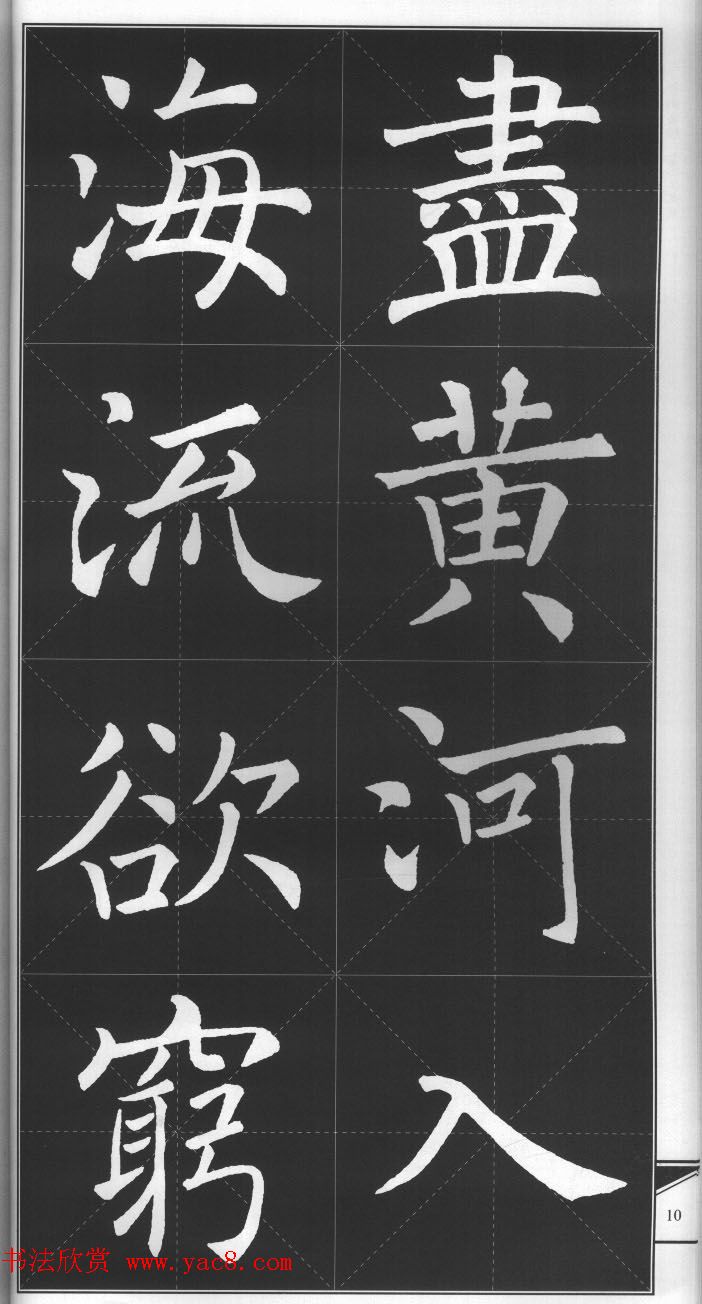 盡黄河入
海流欲窮
10
书法欣赏 www.yac8.com